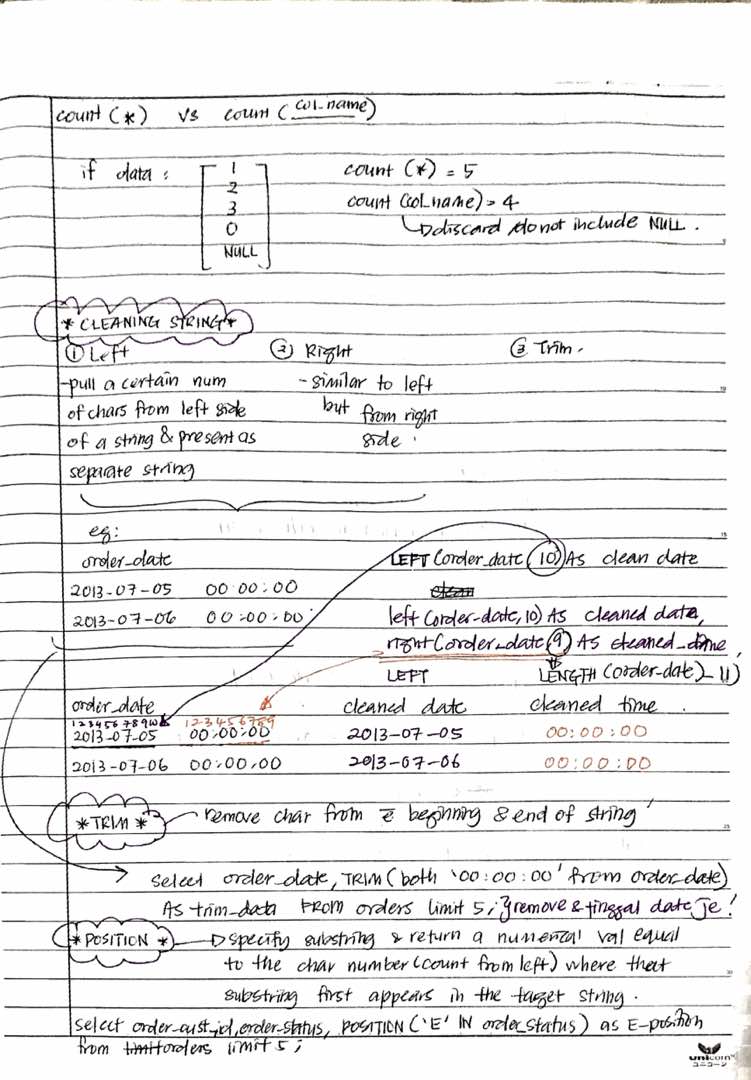 count (*) vs count (col_name)
if data : 1 count (*) = 5
2
3 count (col_name) = 4
0 ↳ discard /do not include NULL .
NULL
* CLEANING STRING *
① Left ② Right ③ Trim .
-pull a certain num - similar to left
of chars from left side but from right
of a string & present as side .
separate string
eg:
order_date LEFT (order_date, 10) As clean date
2013-07-05 00:00:00 clean
2013-07-06 00:00:00 left (order-date, 10) As cleaned data,
right (order_date, 9) As cleaned_time,
LEFT LENGTH (order-date) - 11)
order_date cleaned date cleaned time .
1 2 3 4 5 6 7 8 9 10 1 2 3 4 5 6 7 8 9
2013-07-05 00:00:00 2013-07-05 00:00:00
2013-07-06 00:00:00 2013-07-06 00:00:00
* TRIM * - remove char from e beginning & end of string
Select order_date, TRIM (both '00:00:00' from order_date)
As trim_data FROM orders limit 5; } remove & tinggal date je!
* POSITION * → specify substring & return a numerical val equal
to the char number (count from left) where that
substring first appears in the target string .
select order_cust_id, order-status, POSITION ('E' IN order_status) as E-position
from limit orders limit 5;
unicorn
ユニコーン